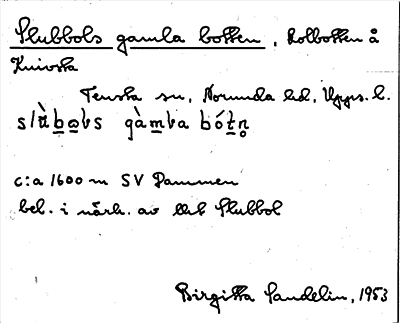 Slubbols gamla botten, Kolbotten å
Knivsta
Tensta sn, Norunda hd, Upps. l.
slùbo̱ƚs gàm̱ƚa bótn̥
c:a 1600 m SV Dammen
bel. i närh. av Slubbol
Birgitta Sandelin, 1953